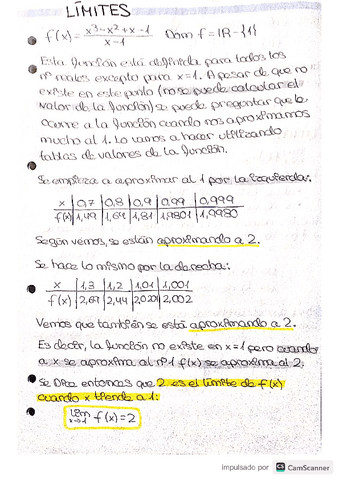 LÍMITES
f(x) = x³-x²+x-1 / x-1    Dom f = ℝ - {1}
Esta función está definida para todos los
nº reales excepto para x=1. A pesar de que no
existe en este punto (no se puede calcular el
valor de la función) se puede preguntar que le
ocurre a la función cuando nos aproximamos
mucho al 1. Lo vamos a hacer utilizando
tablas de valores de la función.
Se empieza a aproximar al 1 por la izquierda:
x | 0,7 | 0,8 | 0,9 | 0,99 | 0,999
f(x) | 1,49 | 1,64 | 1,81 | 1,9801 | 1,9980
Según vemos, se están aproximando a 2.
Se hace lo mismo por la derecha:
x | 1,3 | 1,2 | 1,01 | 1,001
f(x) | 2,69 | 2,44 | 2,0201 | 2,002
Vemos que también se está aproximando a 2.
Es decir, la función no existe en x=1 pero cuando
a x se aproxima al nº 1 f(x) se aproxima al 2.
Se dice entonces que 2 es el límite de f(x)
cuando x tiende a 1:
lím x→1 f(x) = 2
impulsado por CS CamScanner